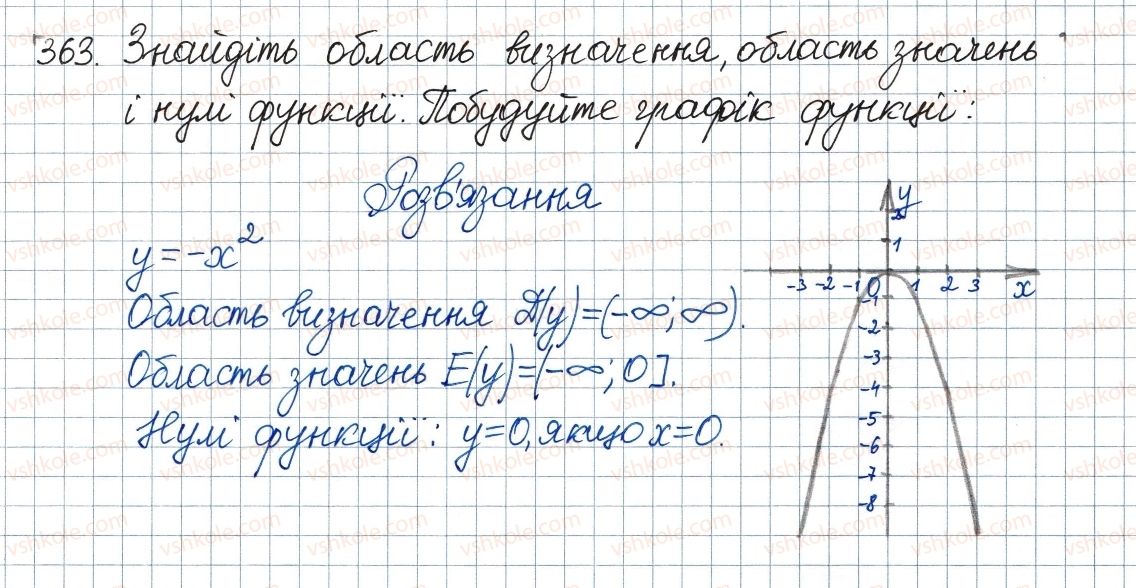 363. Знайдіть область визначення, область значень
і нулі функції. Побудуйте графік функції:
Розв'язання
y = -x²
Область визначення D(y)=(-∞;∞).
Область значень E(y)=(-∞;0].
Нулі функції: y=0, якщо x=0.
y
2
1
-3 -2 -1 0 1 2 3 x
-1
-2
-3
-4
-5
-6
-7
-8
vshkole.com